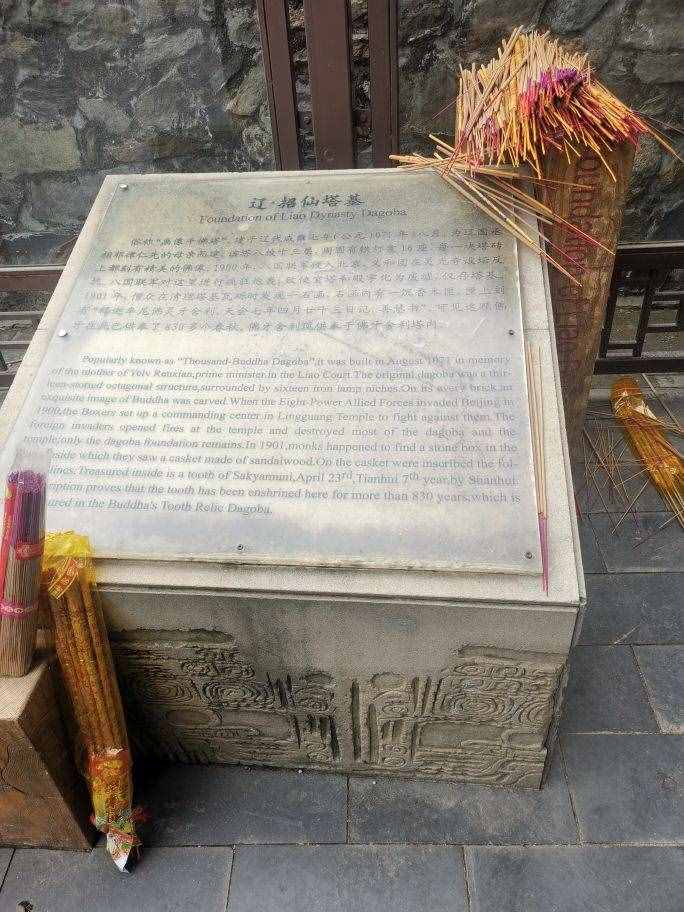 辽·招仙塔基
Foundation of Liao Dynasty Dagoba
俗称"画像千佛塔",建于辽代咸雍七年(公元1071年)八月,为辽国丞
相耶律仁先的母亲所建。该塔八棱十三层,周围有铁灯龛16座,每一块塔砖
上都刻有精美的佛像。1900年,八国联军侵入北京,义和团在灵光寺设坛反
抗,八国联军对这里进行疯狂炮轰,致使古塔和殿宇化为废墟,仅存塔基。
1901年,僧众在清理塔基瓦砾时发现一石函,石函内有一沉香木匣,匣上刻
有"释迦牟尼佛灵牙舍利,天会七年四月廿十三日记,善慧书",可见这颗佛
牙在此已供奉了830多个春秋。佛牙舍利现供奉于佛牙舍利塔内。
Popularly known as "Thousand-Buddha Dagoba",it was built in August,1071 in memory
of the mother of Yelv Renxian,prime minister.in the Liao Court.The original dagoba was a thir-
teen-storied octagonal structure,surrounded by sixteen iron lamp niches.On its every brick,an
exquisite image of Buddha was carved.When the Eight-Power Allied Forces invaded Beijing in
1900,the Boxers set up a commanding center in Lingguang Temple to fight against them.The
foreign invaders opened fires at the temple and destroyed most of the dagoba and the
temple,only the dagoba foundation remains.In 1901,monks happened to find a stone box in the
side which they saw a casket made of sandalwood.On the casket were inscribed the fol-
lines.Treasured inside is a tooth of Sakyamuni,April 23rd,Tianhui 7th year,by Shanhui.
ption proves that the tooth has been enshrined here for more than 830 years,which is
ured in the Buddha's Tooth Relic Dagoba.
oundation of Lia